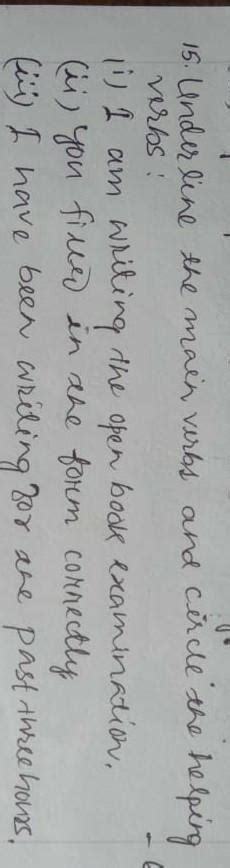 15. Underline the main verbs and circle the helping
verbs:
(i) I am writing the open book examination.
(ii) You filled in the form correctly
(iii) I have been writing for the past three hours.